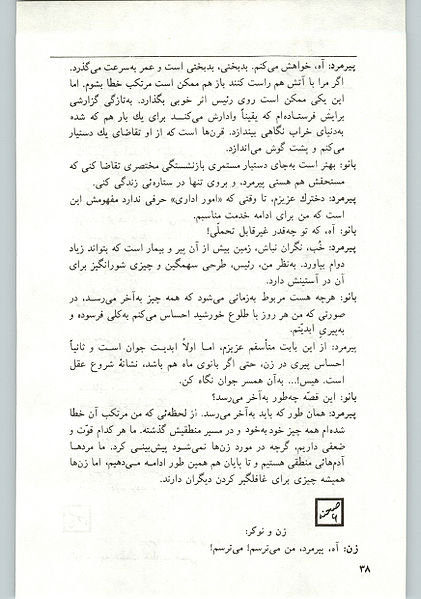 پیرمرد: آه، خواهش می‌کنم. بدبختی، بدبختی است و عمر به‌سرعت می‌گذرد.
اگر مرا با آتش هم راست کنند باز هم ممکن است مرتکب خطا بشوم. اما
این یکی ممکن است روی رئیس اثر خوبی بگذارد. به‌تازگی گزارشی
برایش فرستاده‌ام که یقیناً وادارش می‌کند برای یك بار هم که شده
به‌دنیای خراب نگاهی بیندازد. قرن‌ها است که از او تقاضای یك دستیار
می‌کنم و پشت گوش می‌اندازد.
بانو: بهتر است به‌جای دستیار مستمری بازنشستگی مختصری تقاضا کنی که
مستحقش هم هستی پیرمرد، و بروی تنها در ستاره‌ئی زندگی کنی.
پیرمرد: دخترك عزیزم، تا وقتی که «امور اداری» حرفی ندارد مفهومش این
است که من برای ادامه خدمت مناسبم.
بانو: آه، که تو چه‌قدر غیرقابل تحملّی!
پیرمرد: خُب، نگران نباش، زمین بیش از آن پیر و بیمار است که بتواند زیاد
دوام بیاورد. به‌نظر من، رئیس، طرحی سهمگین و چیزی شورانگیز برای
آن در آستینش دارد.
بانو: هرچه هست مربوط به‌زمانی می‌شود که همه چیز به‌آخر می‌رسد، در
صورتی که من هر روز با طلوع خورشید احساس می‌کنم به‌کلی فرسوده و
به‌پیریِ ابدیّتم.
پیرمرد: از این بابت متأسفم عزیزم، اما اولاً ابدیت جوان است و ثانیاً
احساس پیری در زن، حتی اگر بانوی ماه هم باشد، نشانهٔ شروع عقل
است. هیس!... به‌آن همسر جوان نگاه کن.
بانو: این قصّه چه‌طور به‌آخر می‌رسد؟
پیرمرد: همان طور که باید به‌آخر می‌رسد. از لحظه‌ئی که من مرتکب آن خطا
شده‌ام همه چیز خودبه‌خود و در مسیر منطقیش گذشته. ما هر کدام قوّت و
ضعفی داریم، گرچه در مورد زن‌ها نمی‌شود پیش‌بینی کرد. ما مردها
آدم‌هائی منطقی هستیم و تا پایان هم همین طور ادامه می‌دهیم، اما زن‌ها
همیشه چیزی برای غافلگیر کردن دیگران دارند.
صحنه
زن و نوکر:
زن: آه، پیرمرد، من می‌ترسم! می‌ترسم!
۳۸